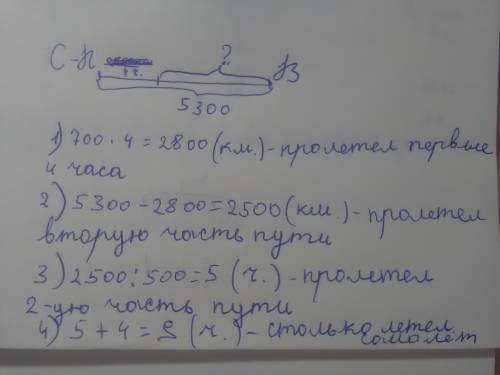 С-П ? В
4 ч.
5300
1) 700 · 4 = 2800 (км.) - пролетел первые
4 часа
2) 5300 - 2800 = 2500 (км.) - пролетел
вторую часть пути
3) 2500 : 500 = 5 (ч.) - пролетел
2-ую часть пути
4) 5 + 4 = 9 (ч.) - столько летел
самолёт